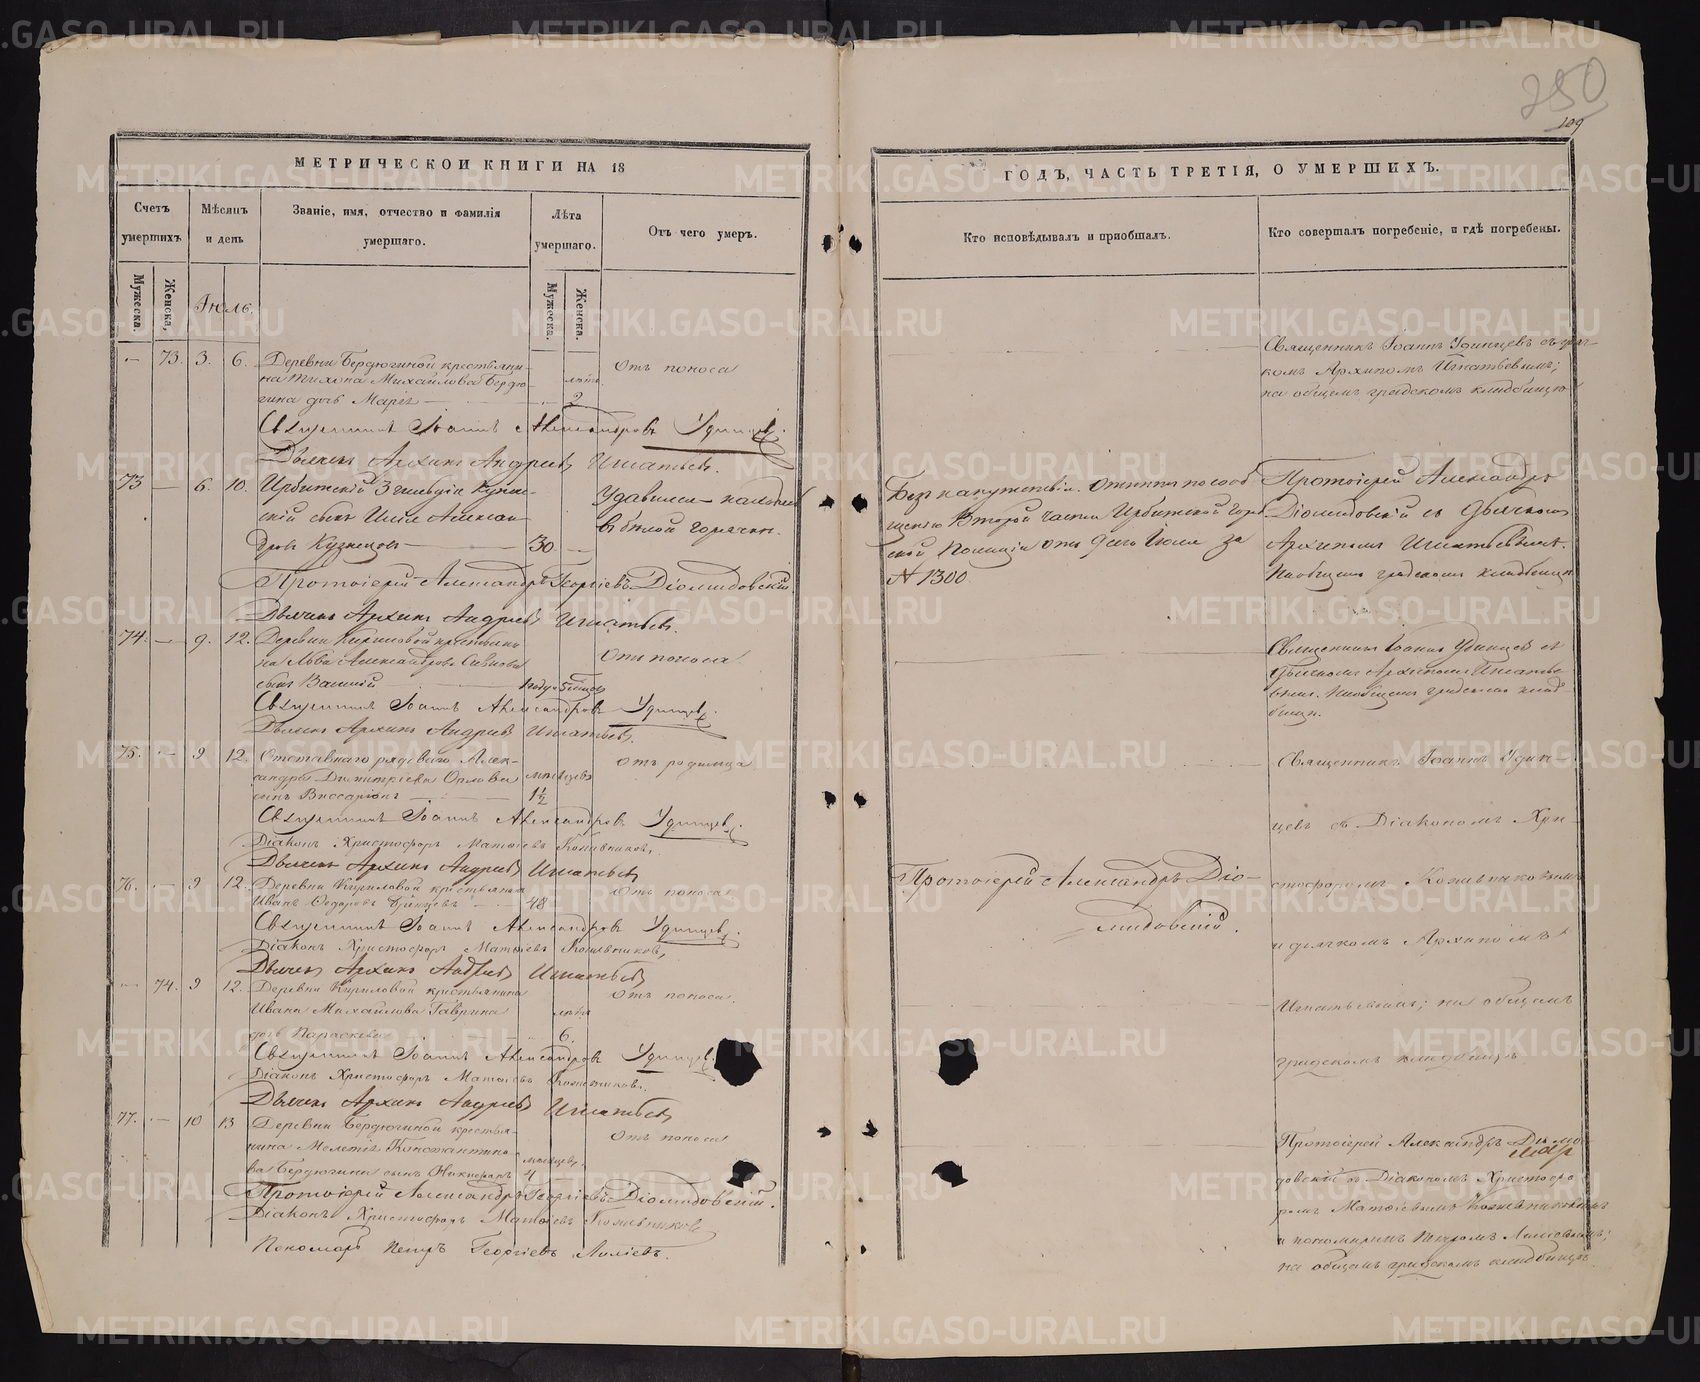 280
109
МЕТРИЧЕСКОЙ КНИГИ НА 18
ГОДЪ, ЧАСТЬ ТРЕТІЯ, О УМЕРШИХЪ.
Счетъ умершихъ
Мѣсяцъ и день
Званіе, имя, отчество и фамилія умершаго.
Лѣта умершаго.
Отъ чего умеръ.
Кто исповѣдывалъ и пріобщалъ.
Кто совершалъ погребеніе, и гдѣ погребены.
Мужеска.
Женска.
Іюль.
Мужеска.
Женска.
— 73. 3. 6. Деревни Бердюгиной крестьяни-
на Тихона Михайлова Бердю- лѣта
гина дочь Марѳа 2
Отъ поноса
Священникъ Іоаннъ Удинцевъ съ дьяч-
комъ Архипомъ Игнатьевымъ;
на общемъ градскомъ кладбищѣ
Священникъ Іоаннъ Александровъ Удинцевъ.
Дьячекъ Архипъ Андреевъ Игнатьевъ.
73 — 6. 10. Ирбитскій 3 гильдіи купе-
скій сынъ Илія Алексан
дровъ Кузнецовъ 30 —
Удавился — находясь
въ бѣлой горячкѣ.
Безъ напутствія. Отпетъ по сооб
щенію Второй части Ирбитской Город
ской Полиціи отъ 9 сего Іюля за
№ 1300
Протоіерей Александръ
Діомидовскій съ дьячкомъ
Архипомъ Игнатьевымъ.
На общемъ градскомъ кладбищѣ
Протоіерей Александръ Георгіевъ Діомидовскій
Дьячекъ Архипъ Андреевъ Игнатьевъ.
74. — 9. 12. Деревни Кириловой крестьяни
на Льва Александрова
сынъ Василій 1 годъ
Отъ поноса
Священникъ Іоаннъ Удинцевъ съ
дьячкомъ Архипомъ Игнатье-
вымъ. На общемъ градскомъ клад-
бищѣ.
Священникъ Іоаннъ Александровъ Удинцевъ.
Дьячекъ Архипъ Андреевъ Игнатьевъ.
75. — 9 12. Отставнаго рядоваго Алек-
сандра Димитріева Орлова мѣсяцевъ
сынъ Виссаріонъ 1½
Отъ родимца
Священникъ Іоаннъ Удин-
цевъ съ Діакономъ Хри-
Священникъ Іоаннъ Александровъ Удинцевъ.
Діаконъ Христофоръ Матѳіевъ Кожевниковъ.
Дьячекъ Архипъ Андреевъ Игнатьевъ
76. — 9 12. Деревни Кириловой крестьянинъ
Иванъ Ѳедоровъ 48
Отъ поноса
Протоіерей Александръ Діо-
мидовскій.
стофоромъ Кожевниковымъ
Священникъ Іоаннъ Александровъ Удинцевъ.
Діаконъ Христофоръ Матѳіевъ Кожевниковъ,
и дьячкомъ Архипомъ
Дьячекъ Архипъ Андреевъ Игнатьевъ
— 74. 9 12. Деревни Кириловой крестьянина
Ивана Михайлова Гаврина лѣта
дочь Параскева 6.
Отъ поноса.
Игнатьевымъ; на общемъ
градскомъ кладбищѣ
Священникъ Іоаннъ Александровъ Удинцевъ.
Діаконъ Христофоръ Матѳіевъ Кожевниковъ.
Дьячекъ Архипъ Андреевъ Игнатьевъ
77. — 10 13 Деревни Бердюгиной крестья-
нина Мелетія Константино-
ва Бердюгина сынъ Никифоръ мѣсяцев. 4
Отъ поноса
Протоіерей Александръ Діоми
довскій съ Діакономъ Христофо
ромъ Матѳіевымъ Кожевниковымъ
и пономаремъ Петромъ Лиліевымъ;
на общемъ градскомъ кладбищѣ
Протоіерей Александръ Георгіевъ Діомидовскій.
Діаконъ Христофоръ Матѳіевъ Кожевниковъ
Пономарь Петръ Георгіевъ Лиліевъ.
METRIKI.GASO-URAL.RU